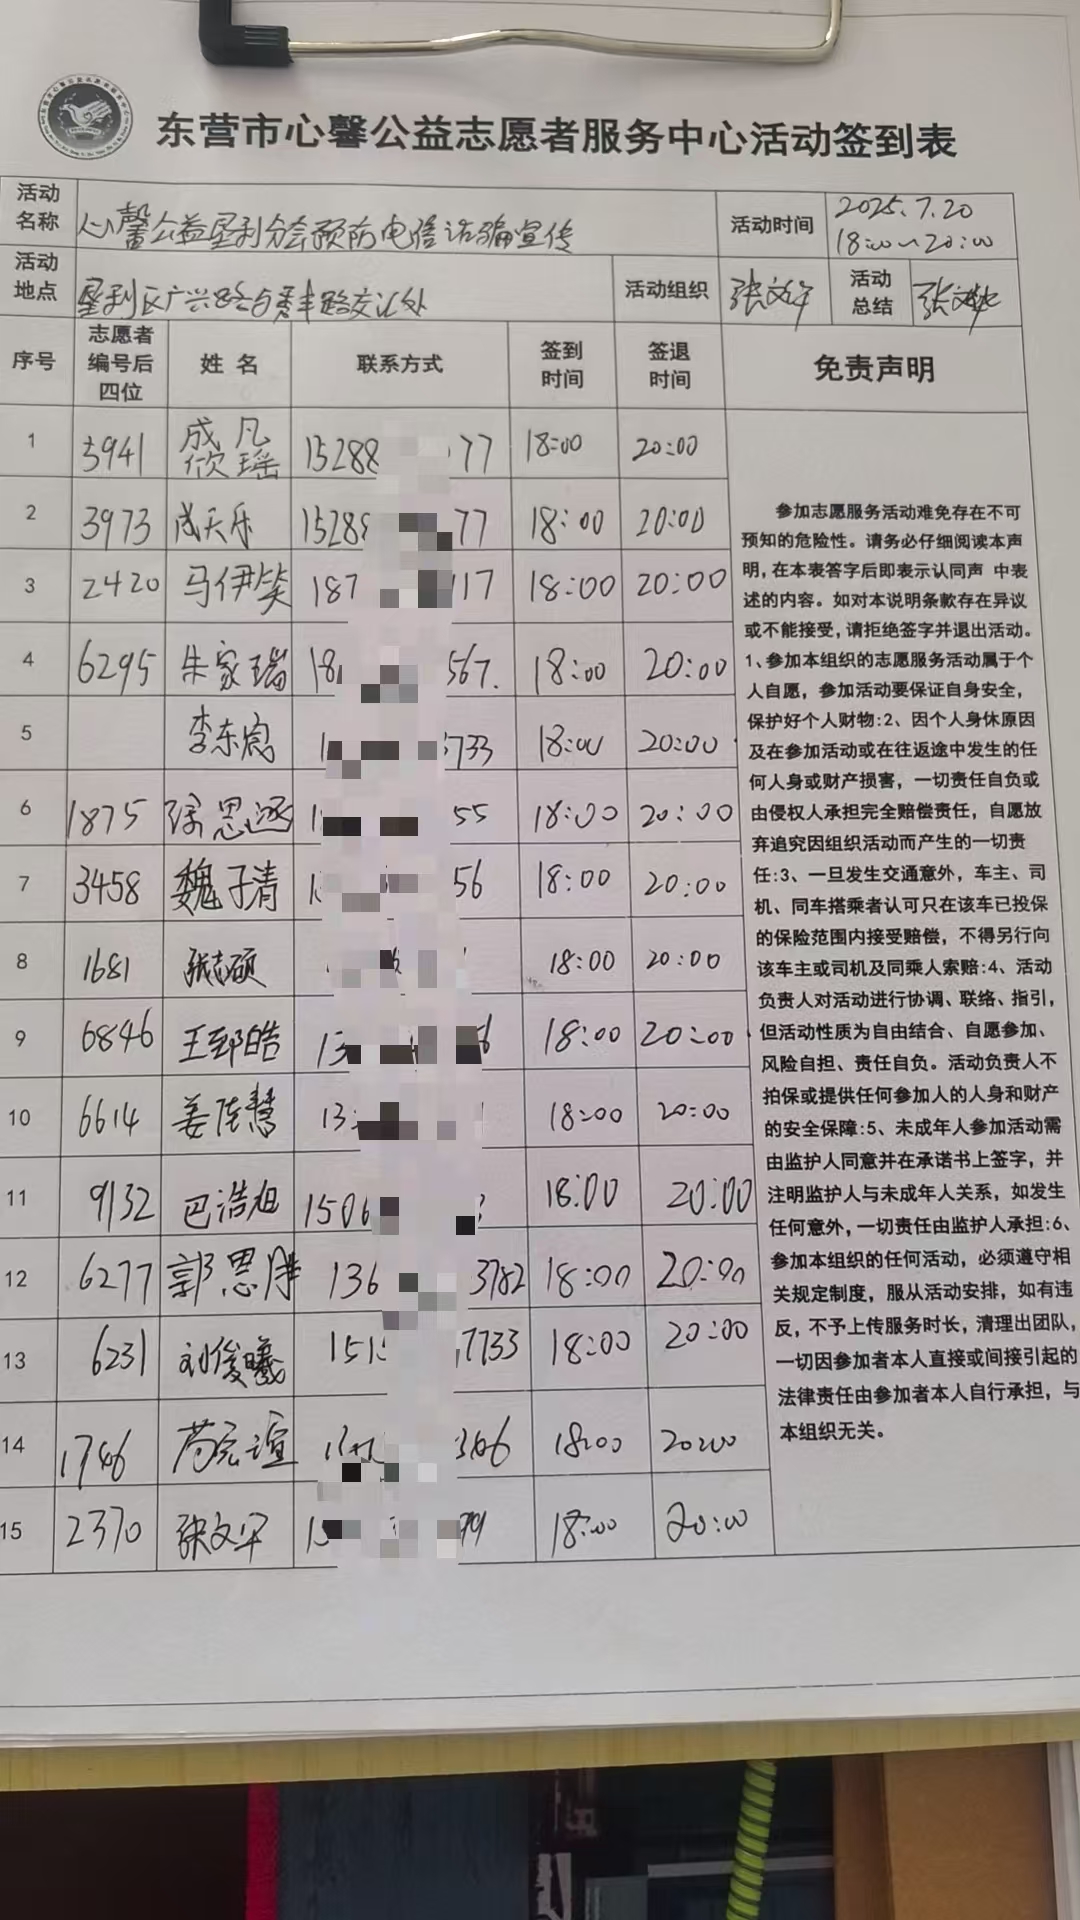 东营市心馨公益志愿者服务中心活动签到表
活动名称 心馨公益垦利分会预防电信诈骗宣传 活动时间 2025.7.20 18:00~20:00
活动地点 垦利区广兴路与 路交汇处 活动组织 张文军 活动总结 张
序号 志愿者编号后四位 姓名 联系方式 签到时间 签退时间 免责声明
1 5941 成凡欣瑶 15288 77 18:00 20:00
2 3973 成天乐 15288 77 18:00 20:00
3 2420 马伊笑 187 117 18:00 20:00
4 6295 朱家瑞 18 567. 18:00 20:00
5 李东宸 1 733 18:00 20:00
6 1875 徐思逐 1 55 18:00 20:00
7 3458 魏子清 1 56 18:00 20:00
8 1681 张志硕 18:00 20:00
9 6846 王郅皓 13 6 18:00 20:00
10 6614 姜 慧 13 18:00 20:00
11 9132 巴浩旭 1506 18:00 20:00
12 6277 郭思 136 3782 18:00 20:00
13 6231 刘俊曦 151 7733 18:00 20:00
14 1746 苟 谊 366 18:00 20:00
15 2370 张文军 15 99 18:00 20:00
参加志愿服务活动难免存在不可
预知的危险性。请务必仔细阅读本声
明,在本表答字后即表示认同声 中表
述的内容。如对本说明条款存在异议
或不能接受,请拒绝签字并退出活动。
1、参加本组织的志愿服务活动属于个
人自愿，参加活动要保证自身安全，
保护好个人财物:2、因个人身休原因
及在参加活动或在往返途中发生的任
何人身或财产损害，一切责任自负或
由侵权人承担完全赔偿责任，自愿放
弃追究因组织活动而产生的一切责
任:3、一旦发生交通意外，车主、司
机、同车搭乘者认可只在该车已投保
的保险范围内接受赔偿，不得另行向
该车主或司机及同乘人索赔:4、活动
负责人对活动进行协调、联络、指引，
但活动性质为自由结合、自愿参加、
风险自担、责任自负。活动负责人不
拍保或提供任何参加人的人身和财产
的安全保障:5、未成年人参加活动需
由监护人同意并在承诺书上签字，并
注明监护人与未成年人关系，如发生
任何意外,一切责任由监护人承担:6、
参加本组织的任何活动，必须遵守相
关规定制度，服从活动安排，如有违
反，不予上传服务时长，清理出团队，
一切因参加者本人直接或间接引起的
法律责任由参加者本人自行承担，与
本组织无关。